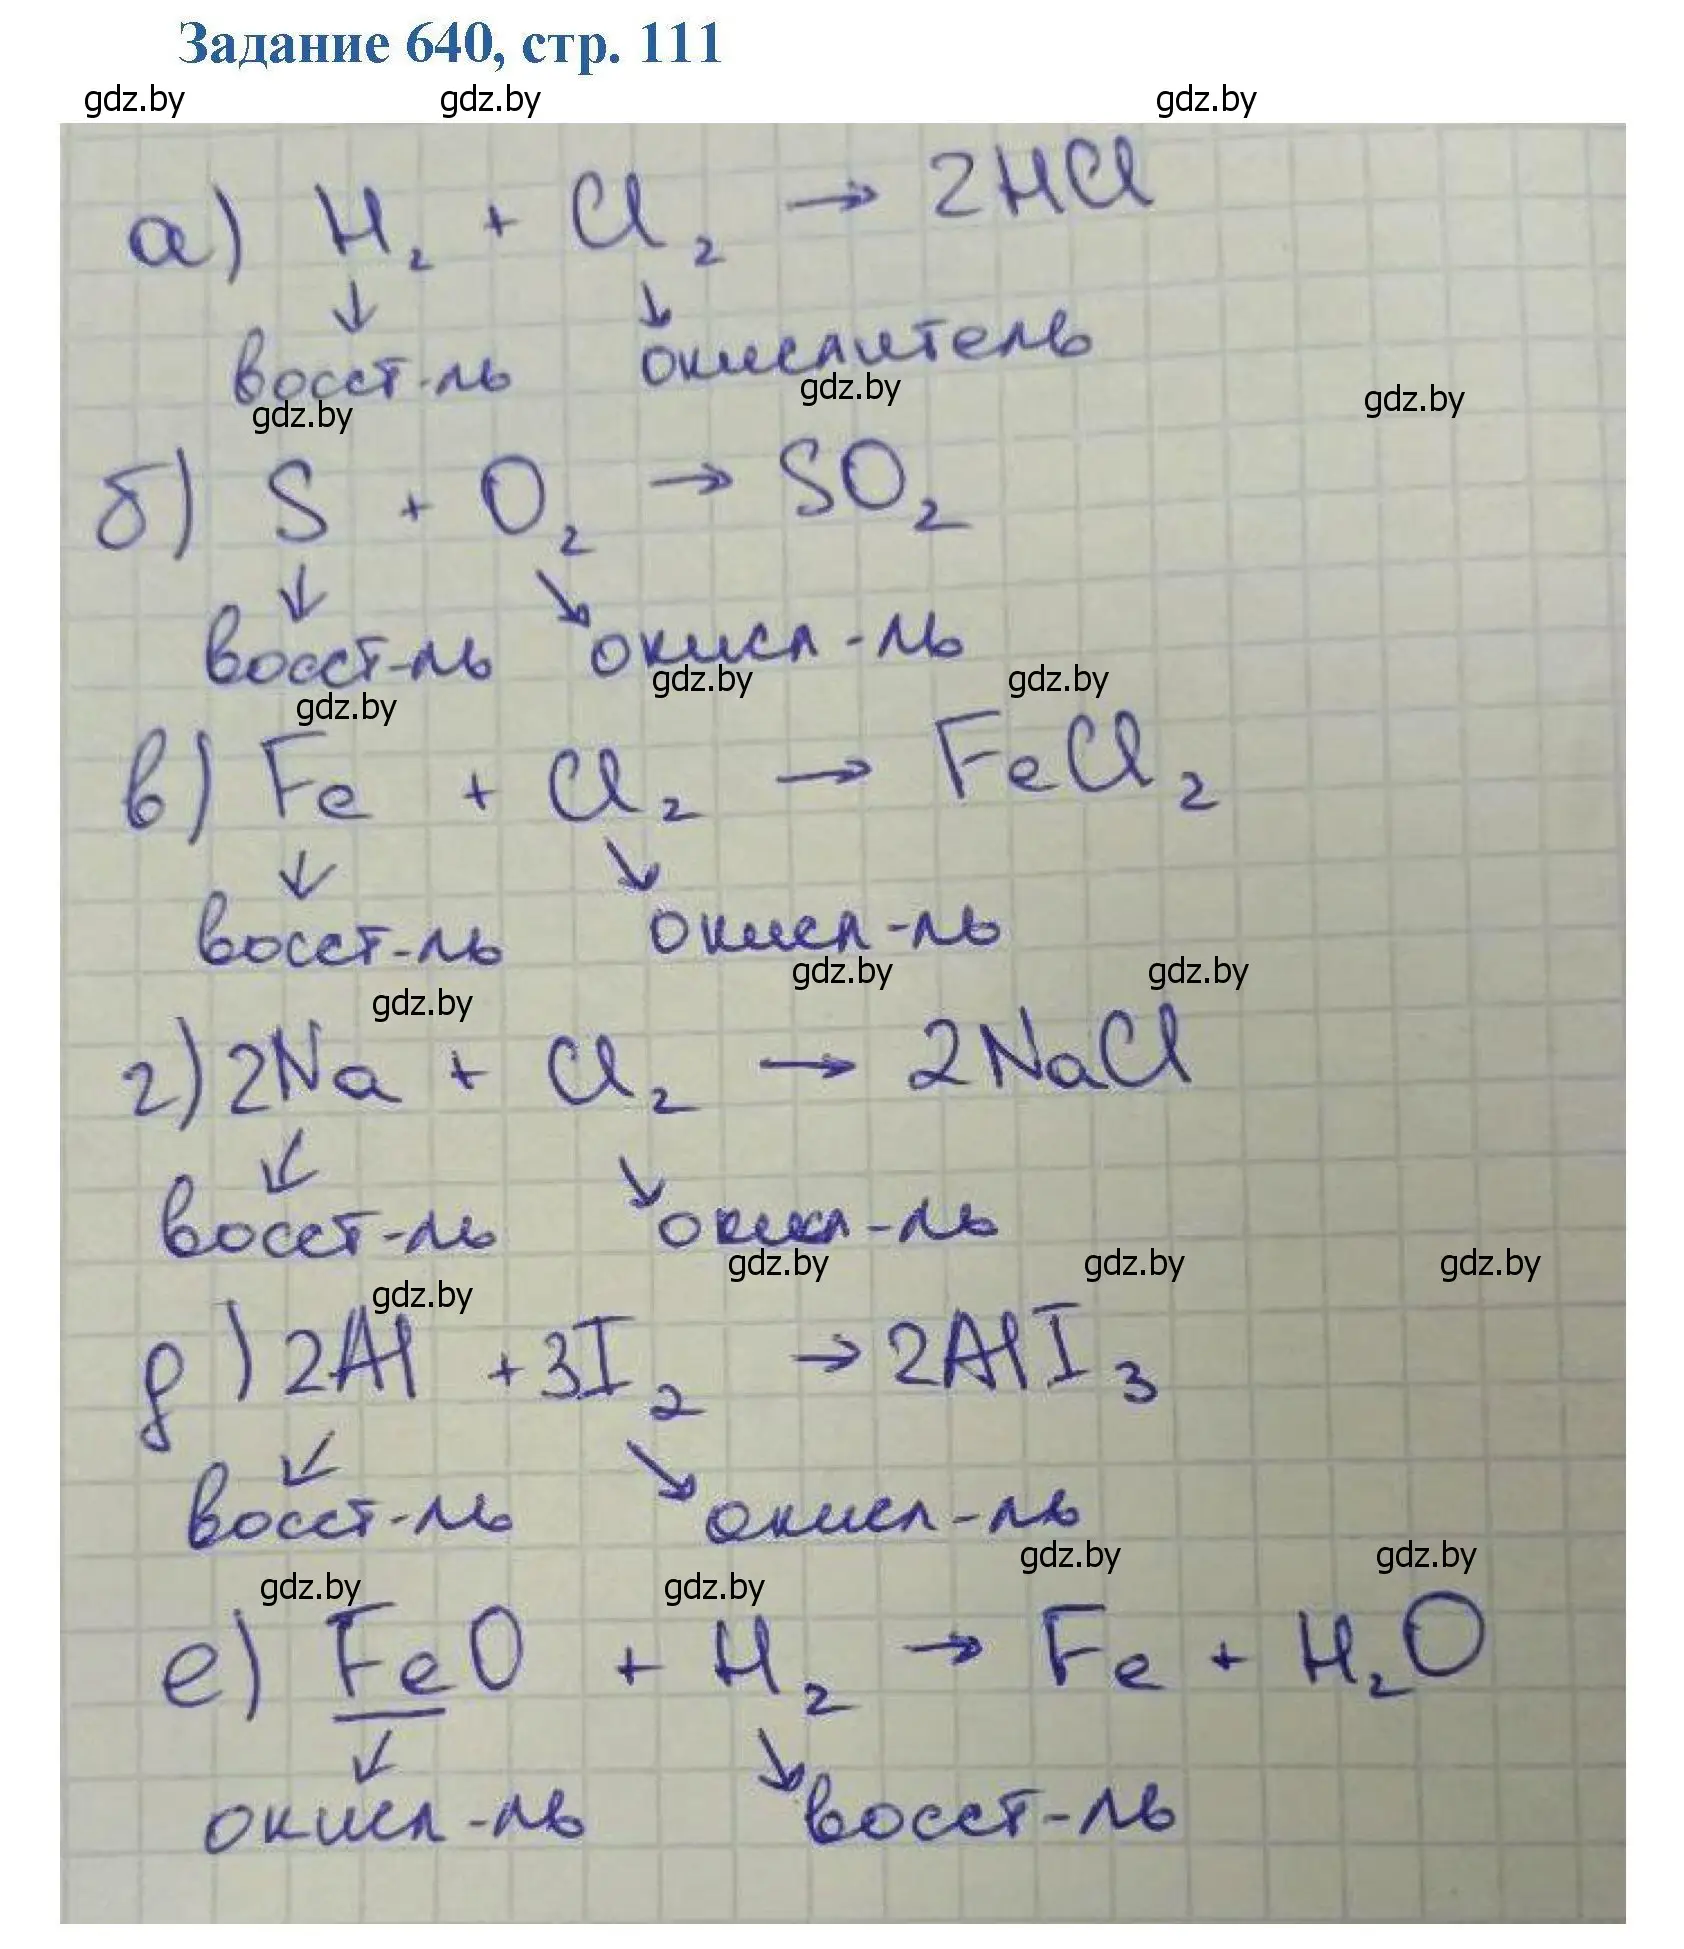 Задание 640, стр. 111
gdz.by gdz.by gdz.by
а) H₂ + Cl₂ → 2HCl
↓ ↓
восст-ль окислитель
gdz.by gdz.by gdz.by
б) S + O₂ → SO₂
↓ ↘
восст-ль окисл-ль
gdz.by gdz.by gdz.by
в) Fe + Cl₂ → FeCl₂
↓ ↘
восст-ль окисл-ль
gdz.by gdz.by gdz.by
г) 2Na + Cl₂ → 2NaCl
↙ ↘
восст-ль окисл-ль
gdz.by gdz.by gdz.by gdz.by
д) 2Al + 3I₂ → 2AlI₃
↙ ↘
восст-ль окисл-ль
gdz.by gdz.by gdz.by gdz.by
е) FeO + H₂ → Fe + H₂O
↙ ↘
окисл-ль восст-ль